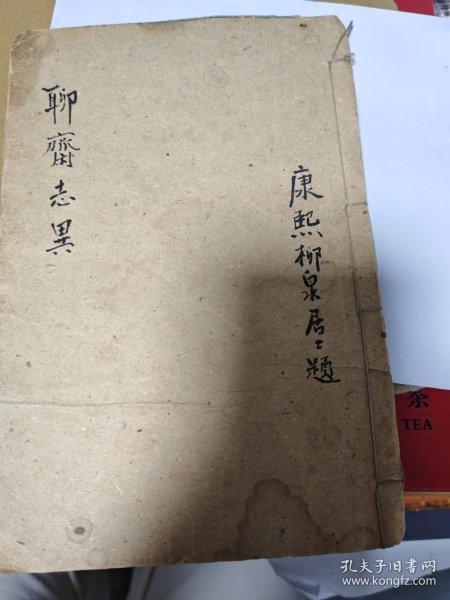 康熙柳泉居士題
聊齋志異
茶
TEA
孔夫子旧书网
www.kongfz.com